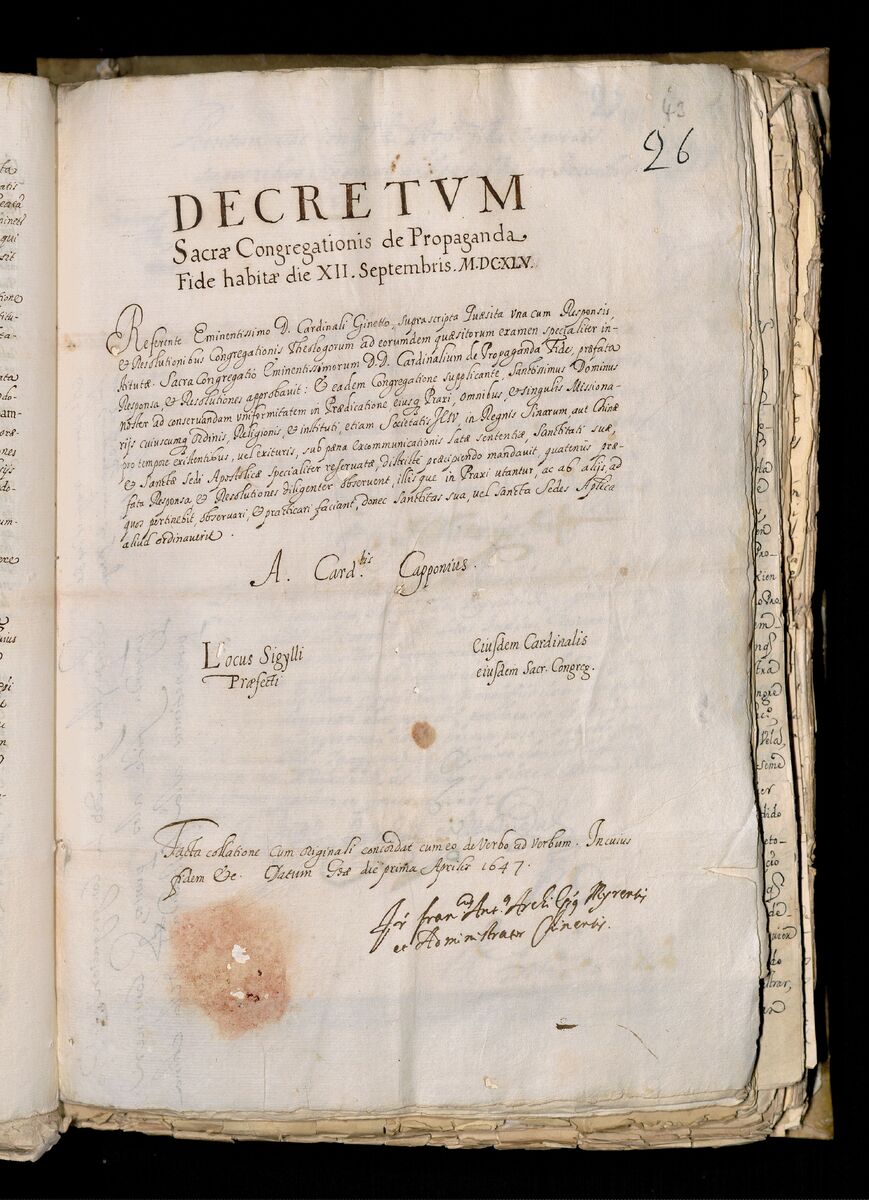 43
26
DECRETVM
Sacræ Congregationis de Propaganda
Fide habitæ die XII. Septembris. M.DCXLV.
Referente Eminentissimo D. Cardinali Ginetto, suprascripta Quæsita vna cum Responsis,
& Resolutionibus Congregationis Theologorum ad eorumdem quæsitorum examen specialiter in-
stitutæ. Sacra Congregatio Eminentissimorum D.D. Cardinalium de Propaganda Fide, præfata
Responsa, & Resolutiones approbavit: & eadem Congregatione supplicante, Sanctissimus Dominus
noster ad conservandam uniformitatem in Prædicatione eiusq Praxi, omnibus, & singulis Missiona-
rijs cuiuscumq Ordinis, Religionis, & instituti, etiam Societatis JESV in Regnis Sinarum, aut Chinæ
pro tempore existentibus, vel exituris, sub pæna Excommunicationis latæ sententiæ, Sanctitati suæ,
& Sanctæ Sedi Apostolicæ specialiter reservatæ, districtè præcipiendo mandavit, quatenùs præ-
fata Responsa, & Resolutiones diligenter observent, illisque in Praxi utantur, ac ab alijs, ad
quos pertinebit observari, & practicari faciant, donec Sanctitas sua, vel Sancta Sedes Aplica
aliud ordinaverit.
A. Card.tis Capponius.
Locus Sigylli
Præfecti
Eiusdem Cardinalis
eiusdem Sacr. Congreg.
Facta collatione cum originali concordat cum eo de Verbo ad Verbum. In cuius
fidem &c. Datum Goæ die prima Aprilis 1647.
Fr. Fran.cus Ant.s Archi Ep̃s Myrensis
et Administrator